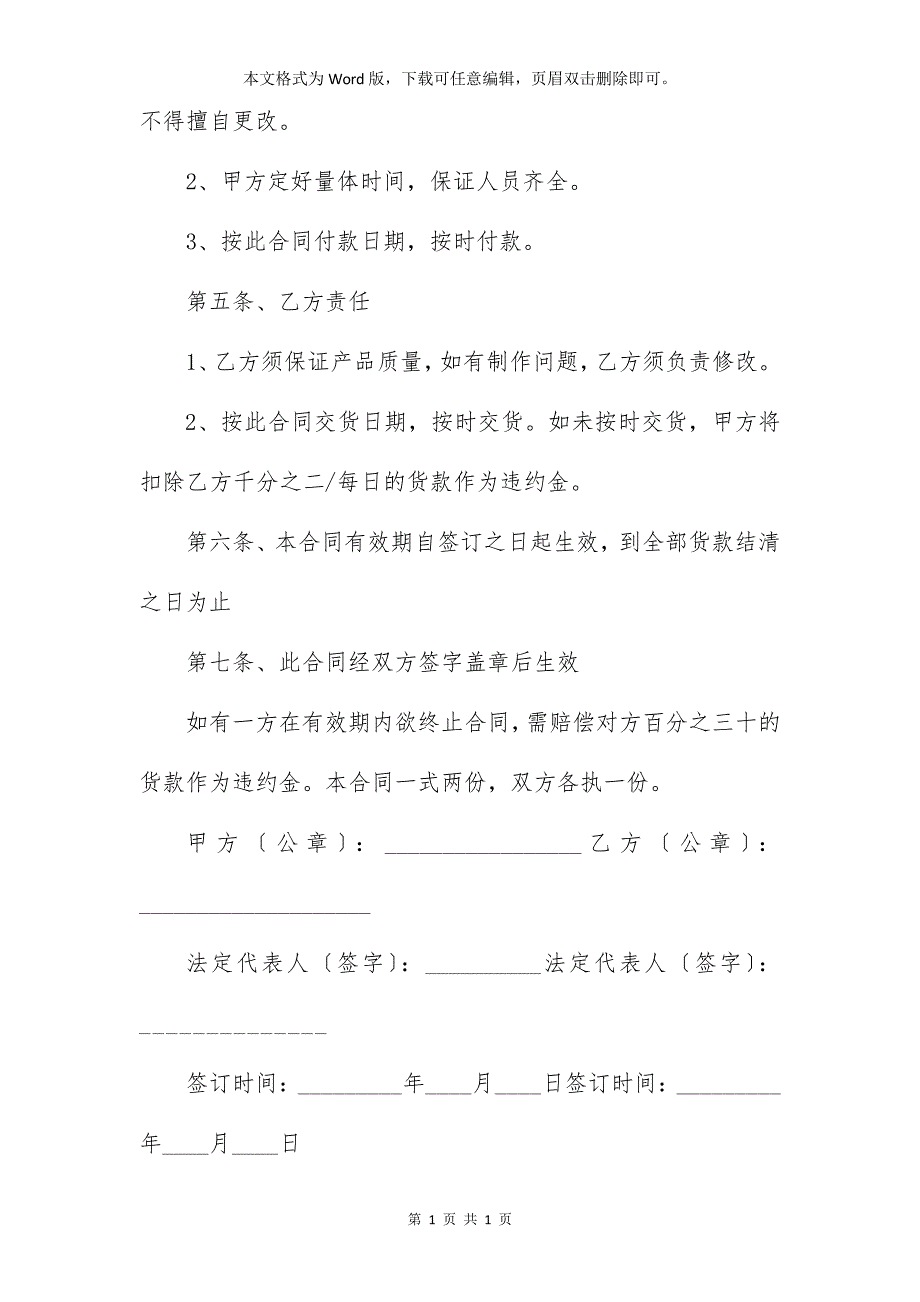 本文格式为 Word 版，下载可任意编辑，页眉双击删除即可。
不得擅自更改。
2、甲方定好量体时间，保证人员齐全。
3、按此合同付款日期，按时付款。
第五条、乙方责任
1、乙方须保证产品质量，如有制作问题，乙方须负责修改。
2、按此合同交货日期，按时交货。如未按时交货，甲方将
扣除乙方千分之二/每日的货款作为违约金。
第六条、本合同有效期自签订之日起生效，到全部货款结清
之日为止
第七条、此合同经双方签字盖章后生效
如有一方在有效期内欲终止合同，需赔偿对方百分之三十的
货款作为违约金。本合同一式两份，双方各执一份。
甲方〔公章〕：_________________乙方〔公章〕：
____________________
法定代表人〔签字〕：__________法定代表人〔签字〕：
______________
签订时间：_________年____月____日签订时间：_________
年____月____日
第 1 页 共 1 页